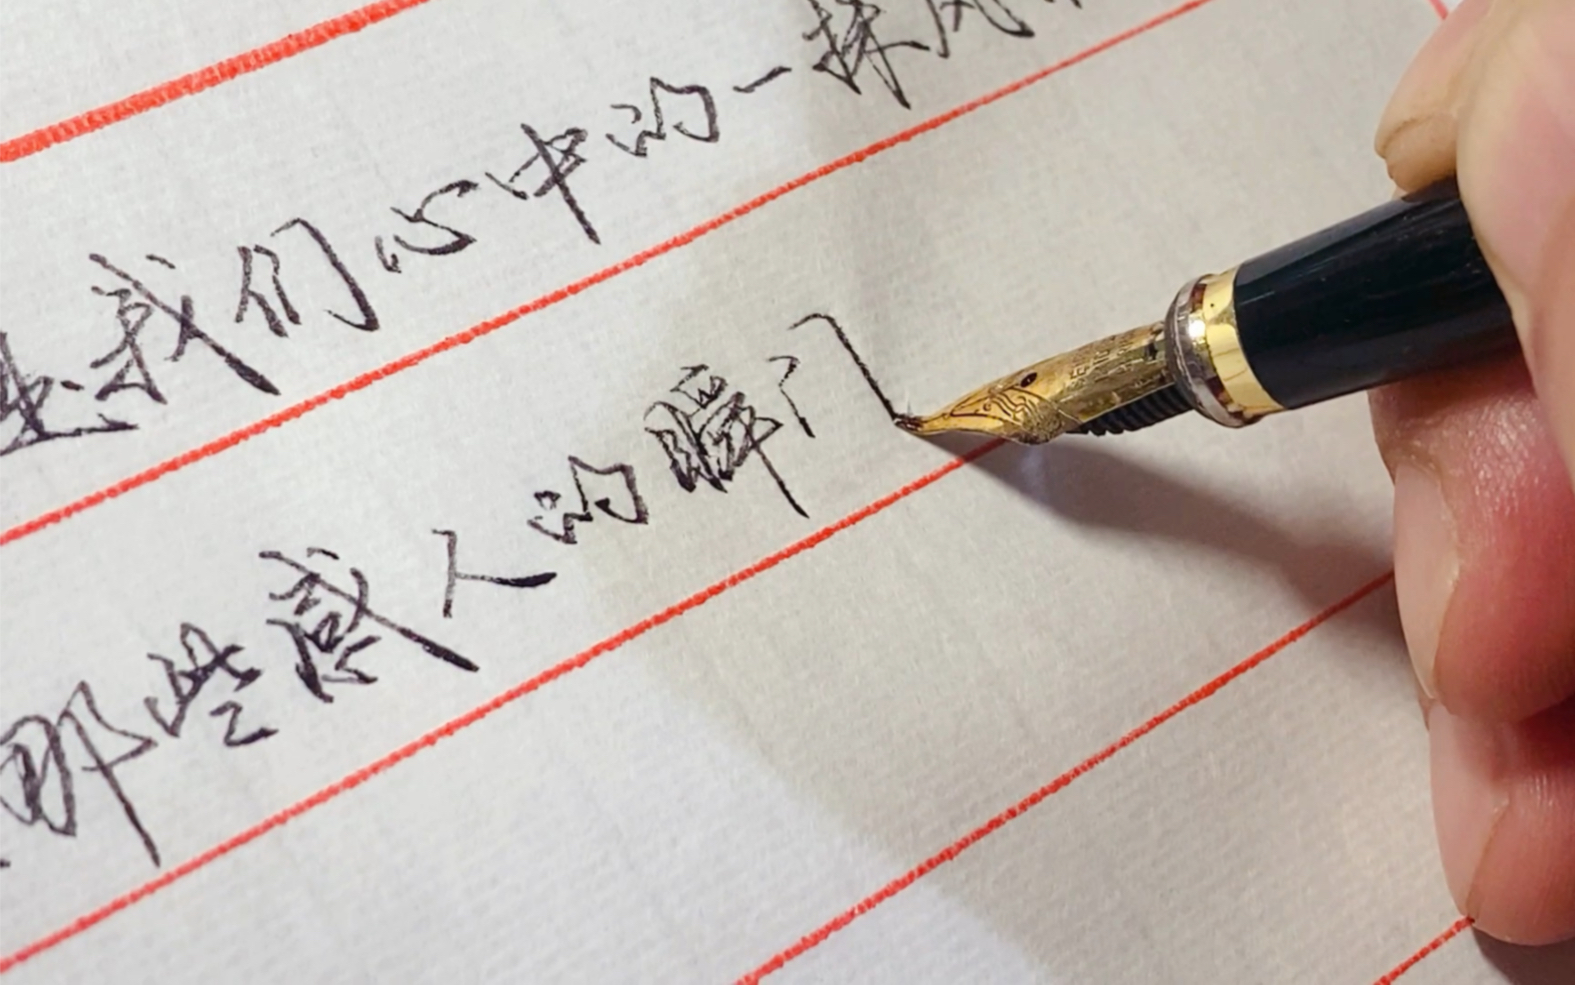 我们心中的一抹风
那些感人的瞬